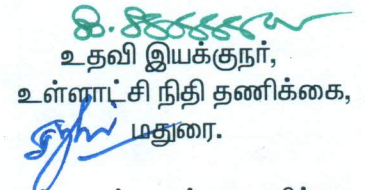 உதவி இயக்குநர்,
உள்ளாட்சி நிதி தணிக்கை,
மதுரை.